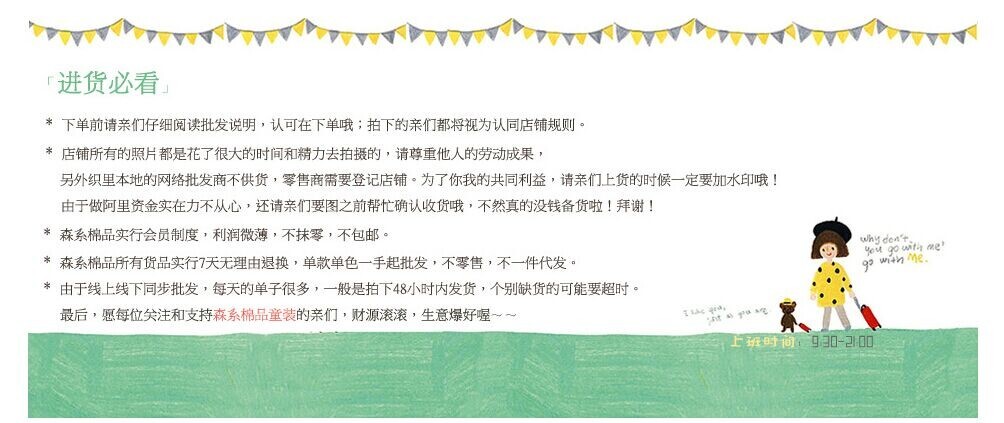 「进货必看」
* 下单前请亲们仔细阅读批发说明，认可在下单哦；拍下的亲们都将视为认同店铺规则。
* 店铺所有的照片都是花了很大的时间和精力去拍摄的，请尊重他人的劳动成果，
另外织里本地的网络批发商不供货，零售商需要登记店铺。为了你我的共同利益，请亲们上货的时候一定要加水印哦！
由于做阿里资金实在力不从心，还请亲们要图之前帮忙确认收货哦，不然真的没钱备货啦！拜谢！
* 森系棉品实行会员制度，利润微薄，不抹零，不包邮。
* 森系棉品所有货品实行7天无理由退换，单款单色一手起批发，不零售，不一件代发。
* 由于线上线下同步批发，每天的单子很多，一般是拍下48小时内发货，个别缺货的可能要超时。
最后，愿每位关注和支持森系棉品童装的亲们，财源滚滚，生意爆好喔～～
why don't
you go with me?
go with me.
I like you,
just as you are
上班时间：9:30-21:00